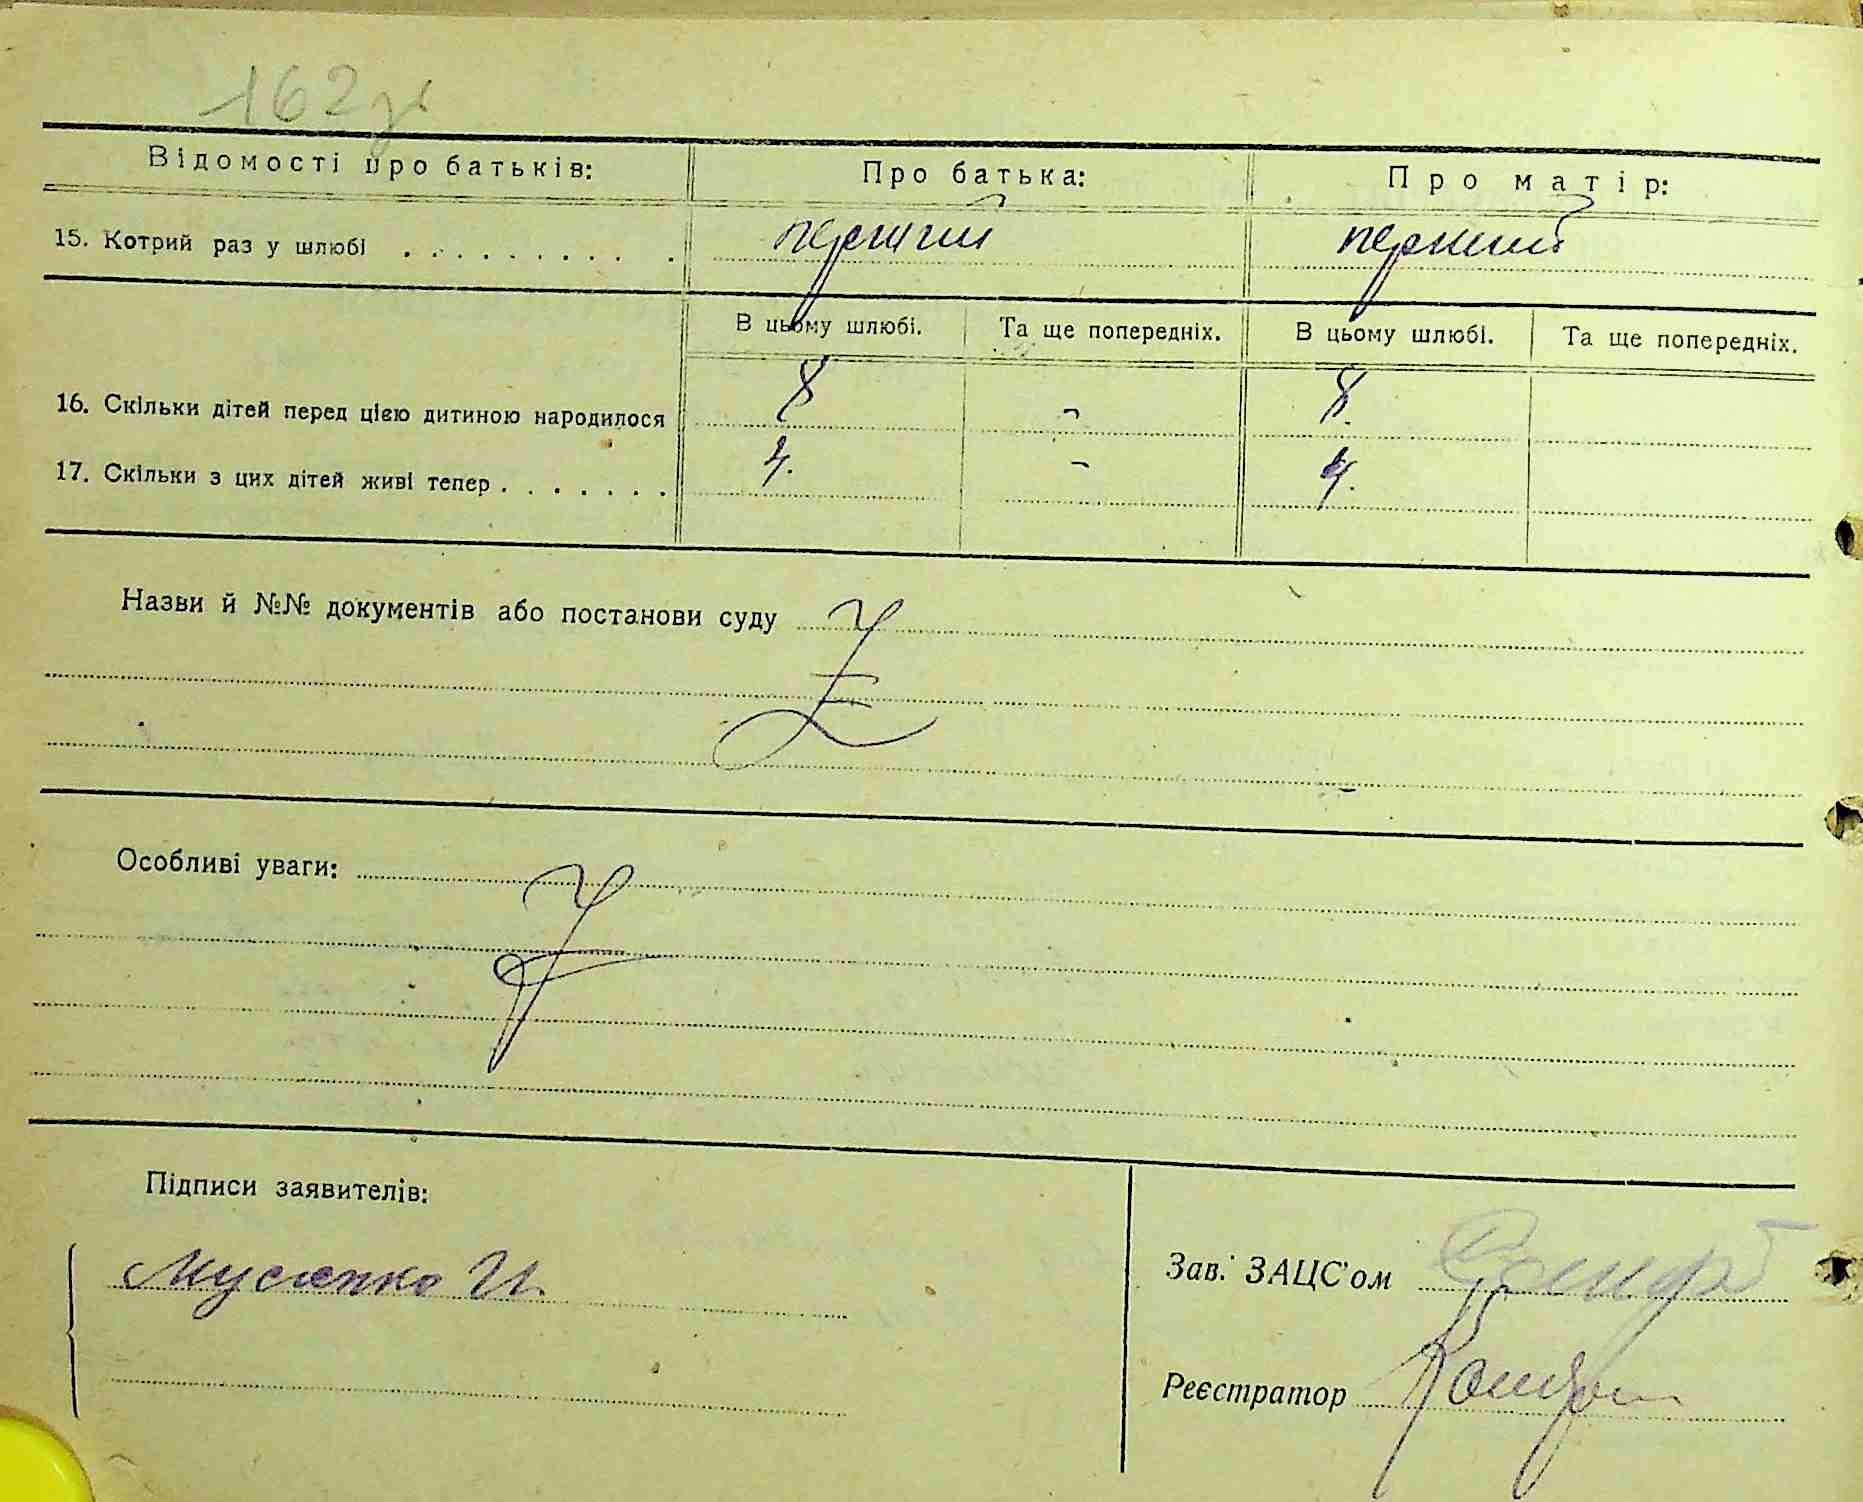 162
Відомості про батьків: Про батька: Про матір:
15. Котрий раз у шлюбі . . . . . . . . . . перший перший
В цьому шлюбі. Та ще попередніх. В цьому шлюбі. Та ще попередніх.
16. Скільки дітей перед цією дитиною народилося 8 - 8.
17. Скільки з цих дітей живі тепер . . . . . . . 4. - 4.
Назви й №№ документів або постанови суду
Особливі уваги:
Підписи заявителів:
Мусієнко И.
Зав. ЗАЦС'ом
Реєстратор